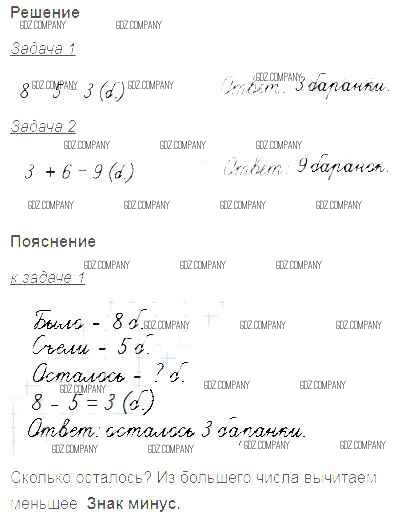 Решение
GDZ.COMPANY GDZ.COMPANY
Задача 1
GDZ.COMPANY GDZ.COMPANY GDZ.COMPANY
8 5 3 (б.) Ответ: 3 баранки.
Задача 2
GDZ.COMPANY GDZ.COMPANY GDZ.COMPANY
3 + 6 = 9 (б.) Ответ: 9 баранок.
GDZ.COMPANY GDZ.COMPANY GDZ.COMPANY GDZ.COMPANY
Пояснение
GDZ.COMPANY GDZ.COMPANY GDZ.COMPANY
к задаче 1
Было - 8 б. GDZ.COMPANY GDZ.COMPANY GDZ.COMPANY
Съели - 5 б.
Осталось - ? б.
GDZ.COMPANY GDZ.COMPANY GDZ.COMPANY
8 - 5 = 3 (б.)
Ответ: осталось 3 баранки.
GDZ.COMPANY GDZ.COMPANY GDZ.COMPANY GDZ.COMPANY
Сколько осталось? Из большего числа вычитаем
меньшее. Знак минус.